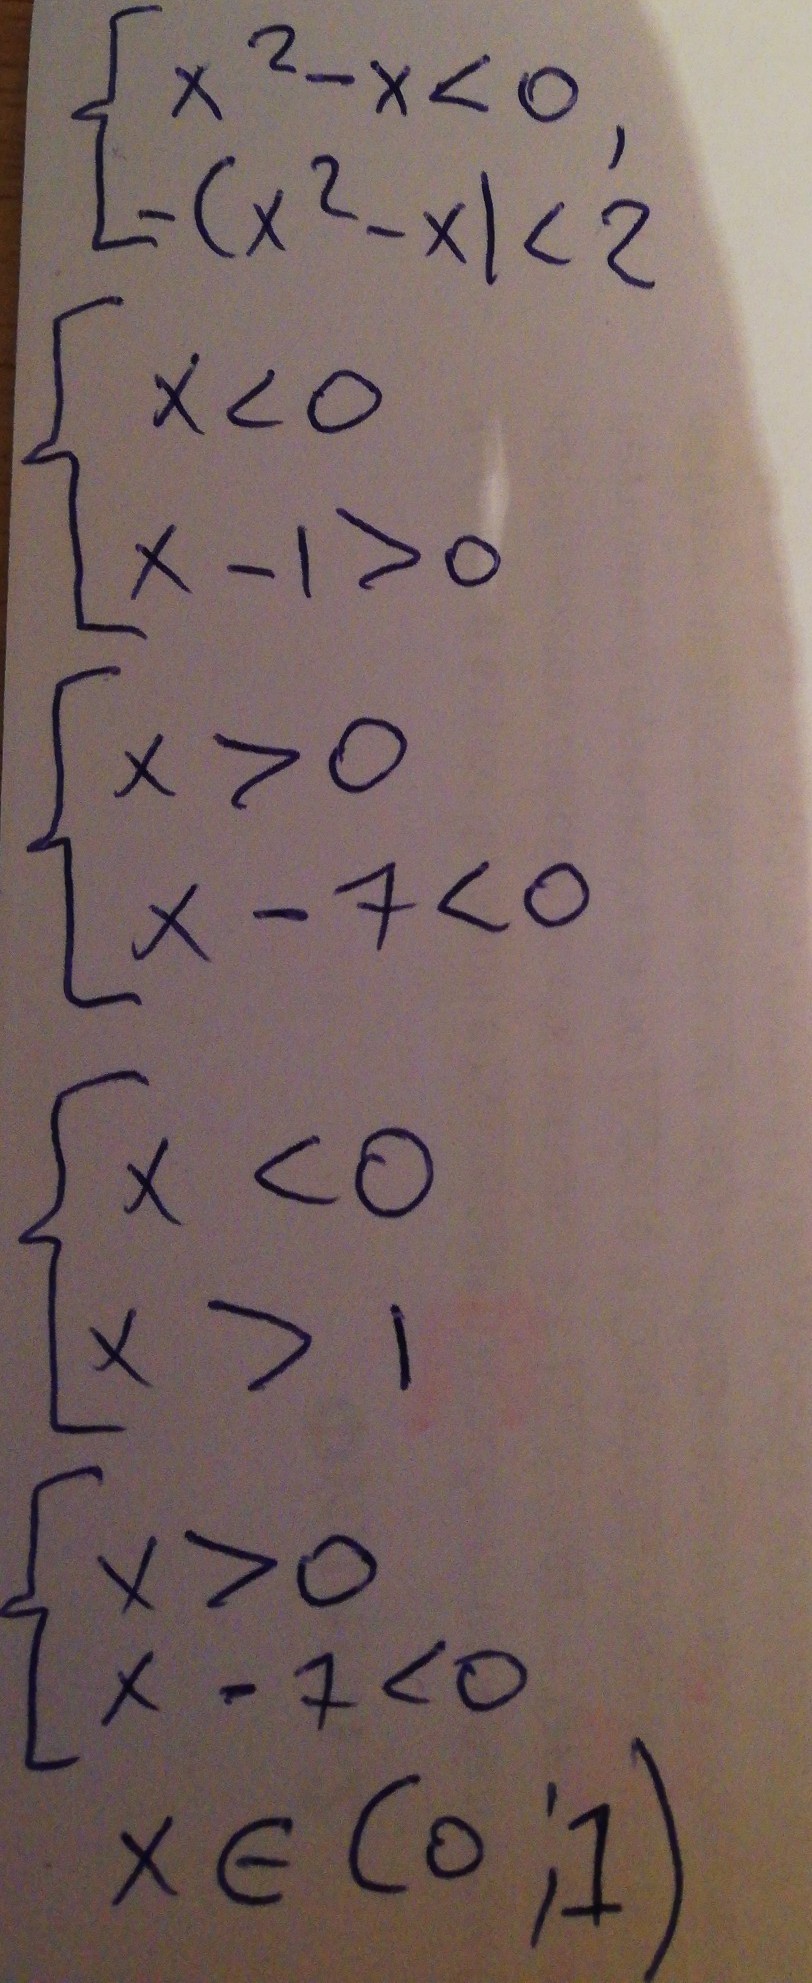 x²-x<0,
-(x²-x)<2
x<0
x-1>0
x>0
x-1<0
x<0
x>1
x>0
x-1<0
x∈(0;1)